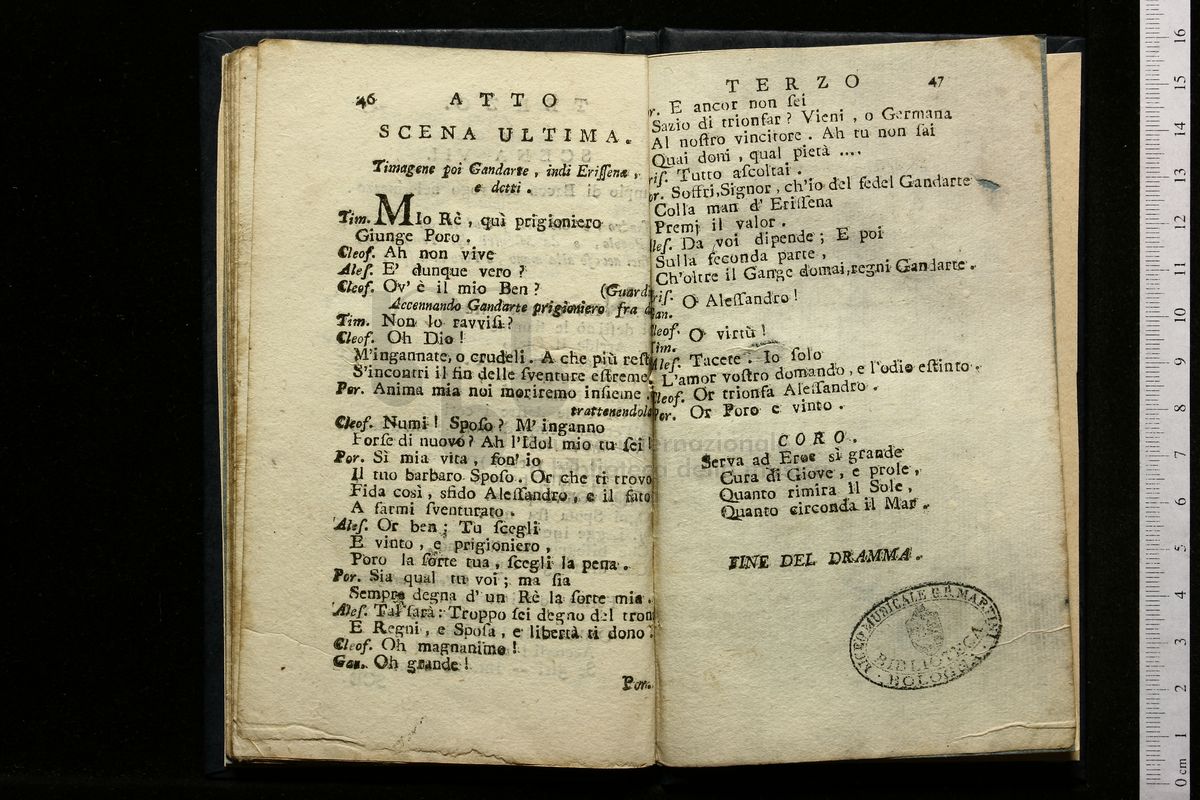 46 ATTO
SCENA ULTIMA.
Timagene poi Gandarte, indi Erissena,
e detti.
Tim. MIo Rè, quì prigioniero
Giunge Poro.
Cleof. Ah non vive
Ales. E' dunque vero?
Cleof. Ov' è il mio Ben? (Guard
Accennando Gandarte prigioniero fra
Tim. Non lo ravvisi?
Cleof. Oh Dio!
M'ingannate, o crudeli. A che più rest
S'incontri il fin delle sventure estreme.
Por. Anima mia noi moriremo insieme.
trattenendol
Cleof. Numi! Sposo? M' inganno
Forse di nuovo? Ah l'Idol mio tu sei!
Por. Sì mia vita, son' io
Il tuo barbaro Sposo. Or che ti trovo
Fida così, sfido Alessandro, e il fato
A farmi sventurato.
Ales. Or ben; Tu scegli
E vinto, e prigioniero,
Poro la sorte tua, scegli la pena.
Por. Sia qual tu voi; ma sia
Sempre degna d' un Rè la sorte mia.
Ales. Tal sarà: Troppo sei degno del tron
E Regni, e Sposa, e libertà ti dono:
Cleof. Oh magnanimo!
Gan. Oh grande!
Por.
TERZO 47
or. E ancor non sei
Sazio di trionfar? Vieni, o Germana
Al nostro vincitore. Ah tu non sai
Quai doni, qual pietà ....
ris. Tutto ascoltai.
or. Soffri, Signor, ch'io del fedel Gandarte
Colla man d' Erissena
Premj il valor.
les. Da voi dipende; E poi
Sulla seconda parte,
Ch'oltre il Gange domai, regni Gandarte.
ris. O Alessandro!
an.
leof. O virtù!
Tim.
Ales. Tacete. Io solo
L'amor vostro domando, e l'odio estinto.
Cleof. Or trionfa Alessandro.
Por. Or Poro e vinto.
CORO.
Serva ad Eroe sì grande
Cura di Giove, e prole,
Quanto rimira il Sole,
Quanto circonda il Mar.
FINE DEL DRAMMA.
LICEO MUSICALE G.B. MARTINI
BIBLIOTECA
BOLOGNA
internazionale
biblioteca della
0 cm 1 2 3 4 5 6 7 8 9 10 11 12 13 14 15 16